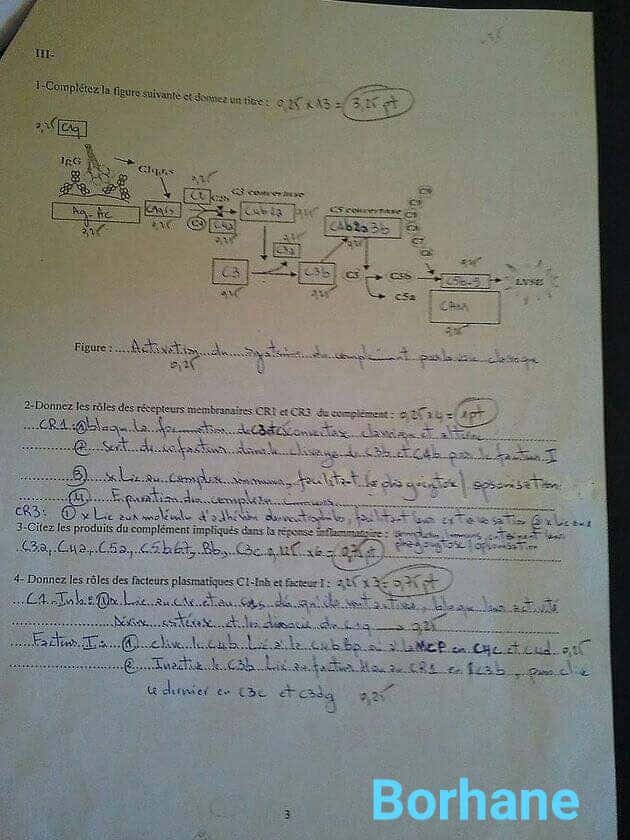 III-
1-Complétez la figure suivante et donnez un titre : 0,25 x 13 = 3,25 pt
0,25 C1q
IgG
C1q,r,s
0,25
C2 C2b
C3 convertase
C4b2a 0,25
C5 convertase
C4b2a3b
0,25
Ag-AC
0,25
0,25
C4
C4a
0,25
C3a
C3
0,25
C3b
0,25
C5
C5b
C5a
C6
C7
C8
0,25
C5b-9
LYSE
CAM
0,25
Figure : Activation du système du complément par la voie classique
0,25
2-Donnez les rôles des récepteurs membranaires CR1 et CR3 du complément : 0,25 x 4 = 1 pt
CR1: ① bloque la formation de C3 convertase classique et alterne
② sert de cofacteur dans le clivage de C3b et C4b par le facteur I
③ x Lie au complexe immuns, facilitant la phagocytose / opsonisation
④ Epuration du complexe immuns
CR3: ① x Lie aux molécule d'adhésion du neutrophile, facilitant leur ② x Lie aux
3-Citez les produits du complément impliqués dans la réponse inflammatoire :
phagocytose / opsonisation
C3a, C4a, C5a, C5b67, Bb, C3c 0,125 x 6 = 0,75 pt
4- Donnez les rôles des facteurs plasmatiques C1-Inh et facteur I : 0,25 x 3 = 0,75 pt
C1-Inh: ① x Lie au C1r et au C1s dès qu'ils sont activés, bloque leur activité
sérine estérase et les dissocie de C1q 0,25
Facteur I: ① clive le C4b Lié à la C4bBp ou à la MCP en C4c et C4d 0,25
② Inactive le C3b Lié au facteur H ou au CR1 en iC3b, puis clive
ce dernier en C3c et C3dg 0,25
3
Borhane